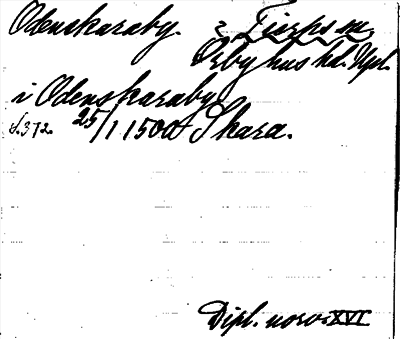 Odenskaraby. ? Tierps sn.
Örbyhus hd. Upl.
i Odenskaraby
s. 372. 25/1 1500 Skara.
Dipl. norv. XVI